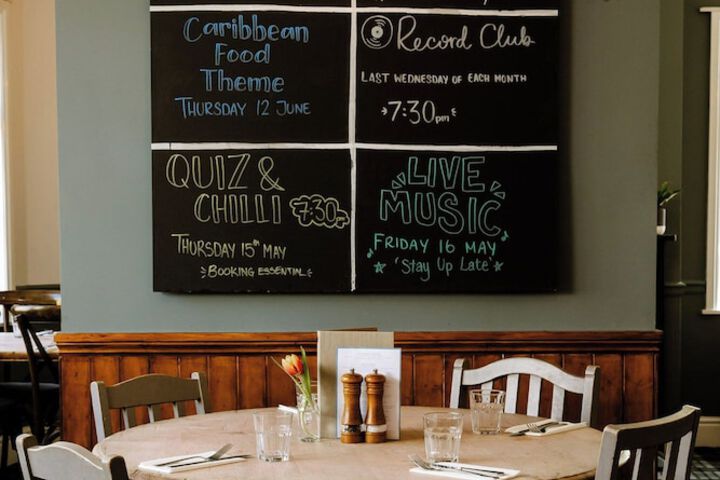 Caribbean
Food
Theme
THURSDAY 12 JUNE
Record Club
LAST WEDNESDAY OF EACH MONTH
7:30pm
QUIZ &
CHILLI 7:30PM
THURSDAY 15TH MAY
BOOKING ESSENTIAL
LIVE
MUSIC
FRIDAY 16 MAY
'Stay Up Late'